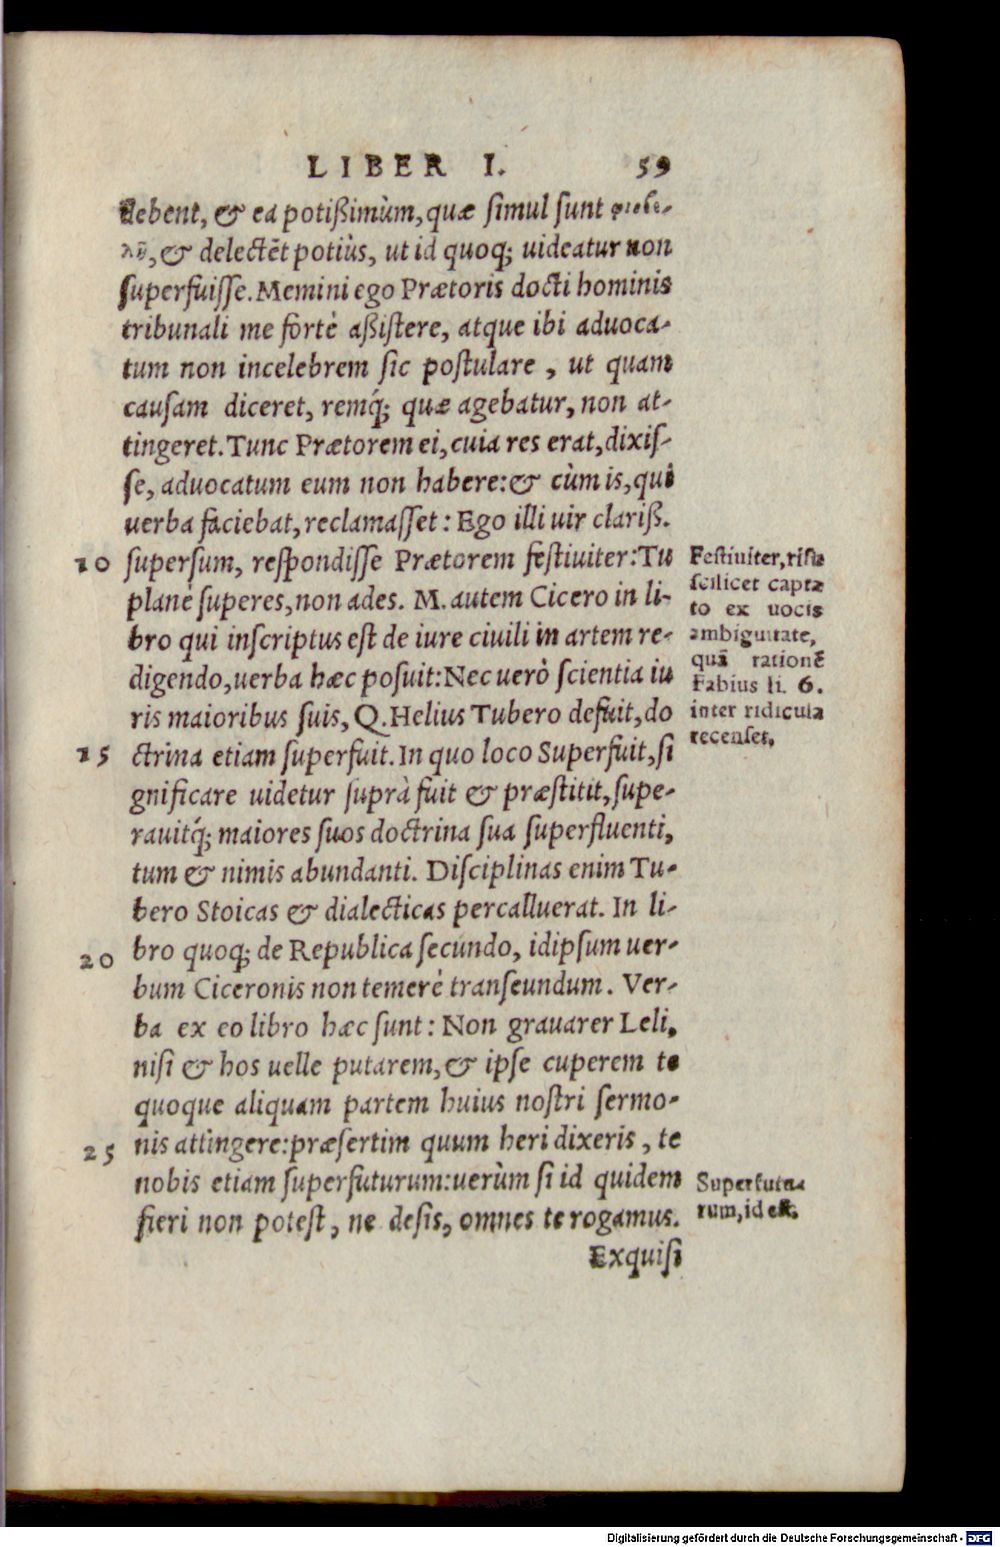 LIBER I. 59
debent, & ea potißimùm, quæ simul sunt
& delectēt potiùs, ut id quoq; uideatur non
superfuiſſe. Memini ego Prætoris docti hominis
tribunali me fortè aßiſtere, atque ibi aduoca-
tum non incelebrem ſic poſtulare, ut quam
cauſam diceret, remq́; quæ agebatur, non at-
tingeret. Tunc Prætorem ei, cuia res erat, dixiſ-
ſe, aduocatum eum non habere: & cùm is, qui
uerba faciebat, reclamaſſet: Ego illi uir clariß.
10 ſuperſum, reſpondiſſe Prætorem feſtiuiter: Tu
planè ſuperes, non ades. M. autem Cicero in li-
bro qui inſcriptus eſt de iure ciuili in artem re-
digendo, uerba hæc poſuit: Nec uerò ſcientia iu
ris maioribus ſuis, Q. Helius Tubero defuit, do
15 ctrina etiam ſuperfuit. In quo loco Superfuit, ſi
gnificare uidetur ſuprà fuit & præſtitit, ſupe-
rauitq́; maiores ſuos doctrina ſua ſuperfluenti,
tum & nimis abundanti. Diſciplinas enim Tu-
bero Stoicas & dialecticas percalluerat. In li-
20 bro quoq; de Republica ſecundo, idipſum uer-
bum Ciceronis non temerè tranſeundum. Ver-
ba ex eo libro hæc ſunt: Non grauarer Leli,
niſi & hos uelle putarem, & ipſe cuperem te
quoque aliquam partem huius noſtri ſermo-
25 nis attingere: præſertim quum heri dixeris, te
nobis etiam ſuperfuturum: uerùm ſi id quidem
fieri non poteſt, ne deſis, omnes te rogamus.
Exquiſi
Feſtiuiter, riſu
ſcilicet capta
to ex uocis
ambiguitate,
quā rationē
Fabius li. 6.
inter ridicula
recenſet.
Superfutu-
rum, id eſt,
Digitalisierung gefördert durch die Deutsche Forschungsgemeinschaft - DFG